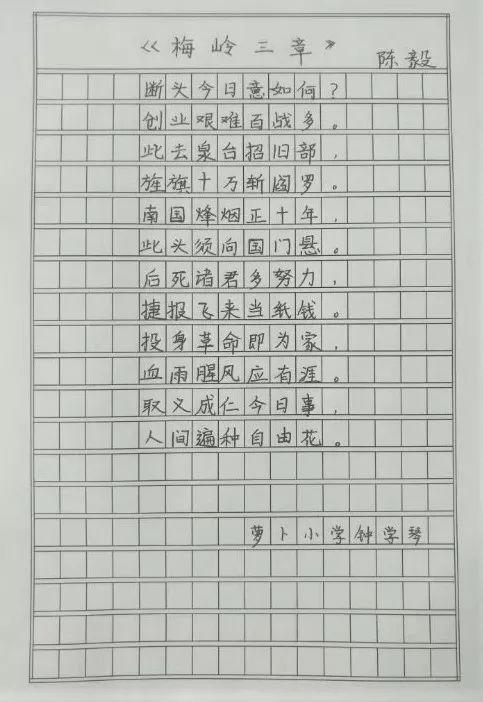 《梅岭三章》
陈毅
断头今日意如何?
创业艰难百战多。
此去泉台招旧部,
旌旗十万斩阎罗。
南国烽烟正十年,
此头须向国门悬。
后死诸君多努力,
捷报飞来当纸钱。
投身革命即为家,
血雨腥风应有涯。
取义成仁今日事,
人间遍种自由花。
萝卜小学钟学琴